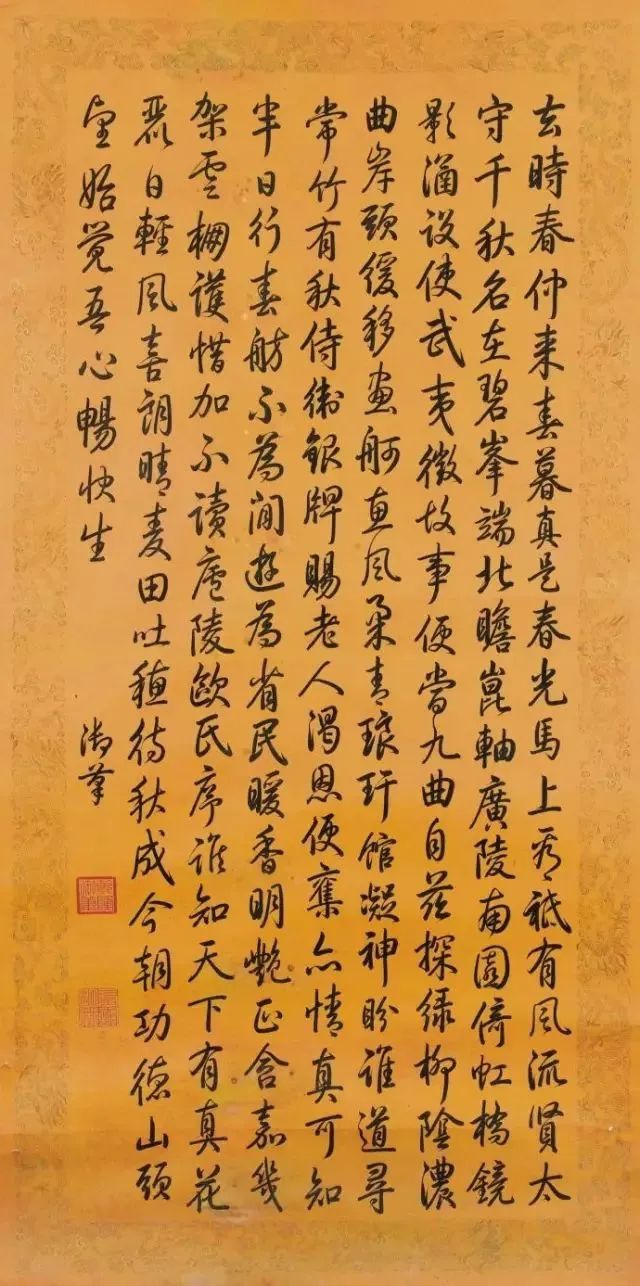 去時春仲来春暮真是春光馬上看祗有風流賢太
守千秋名在碧峯端北瞻崑軸廣陵南園倚虹橋鏡
影涵设使武夷徵故事便當九曲自兹探绿柳陰濃
曲岸頭緩移畫舸惠風柔青琅玕馆凝神盼誰道尋
常竹有秋侍衛銀牌賜老人渴恩便奪亦情真可知
半日行春舫不為閒遊為省民暖香明艷正含嘉幾
架雲棚護惜加不讀廬陵歐氏序誰知天下有真花
麗日輕風喜朗晴麦田吐穗待秋成今朝功德山頭
望始覺吾心暢快生
御筆